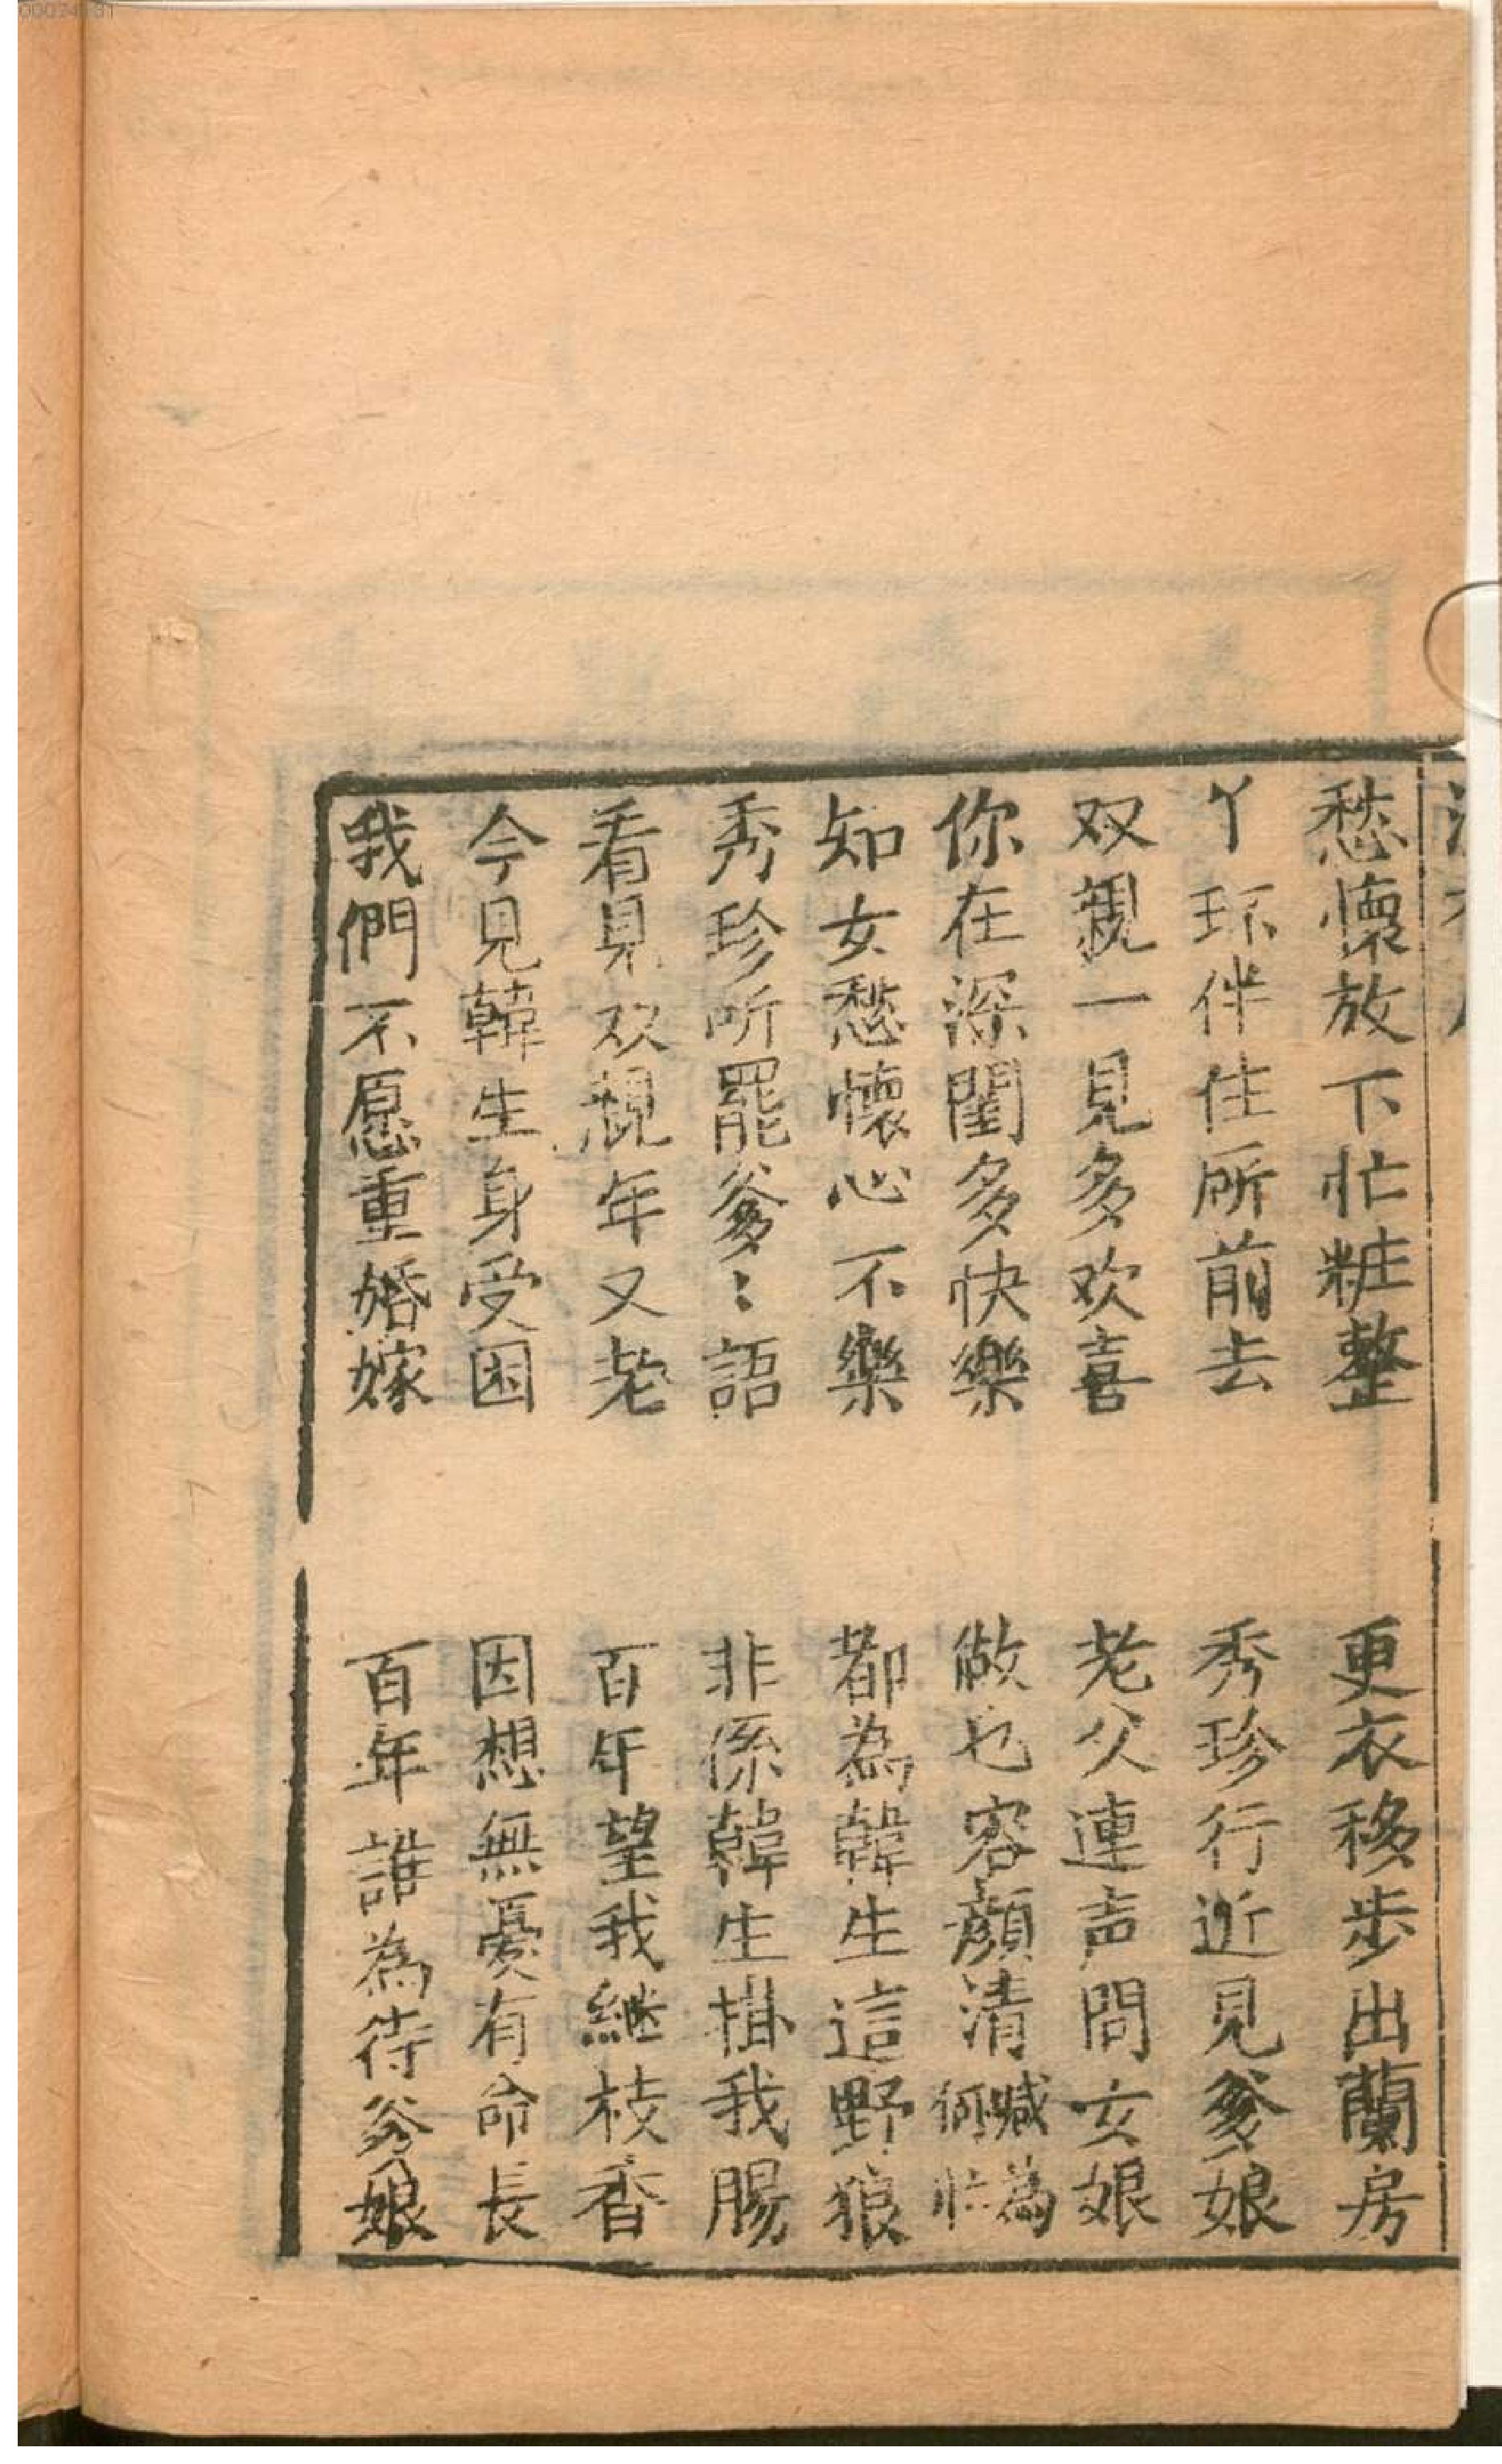 愁懷放下忙粧整 更衣移步出蘭房
丫环伴住所前去 秀珍行近見爹娘
双親一見多欢喜 老父連声問女娘
你在深閨多快樂 做乜容顏清喊為何忙
知女愁懷心不樂 都為韓生這野狼
秀珍听罷爹〻語 非係韓生掛我腸
看見双親年又老 百年望我継枝香
今見韓生身受困 因想無憂有命長
我們不愿重婚嫁 百年誰為待爹娘
00024131